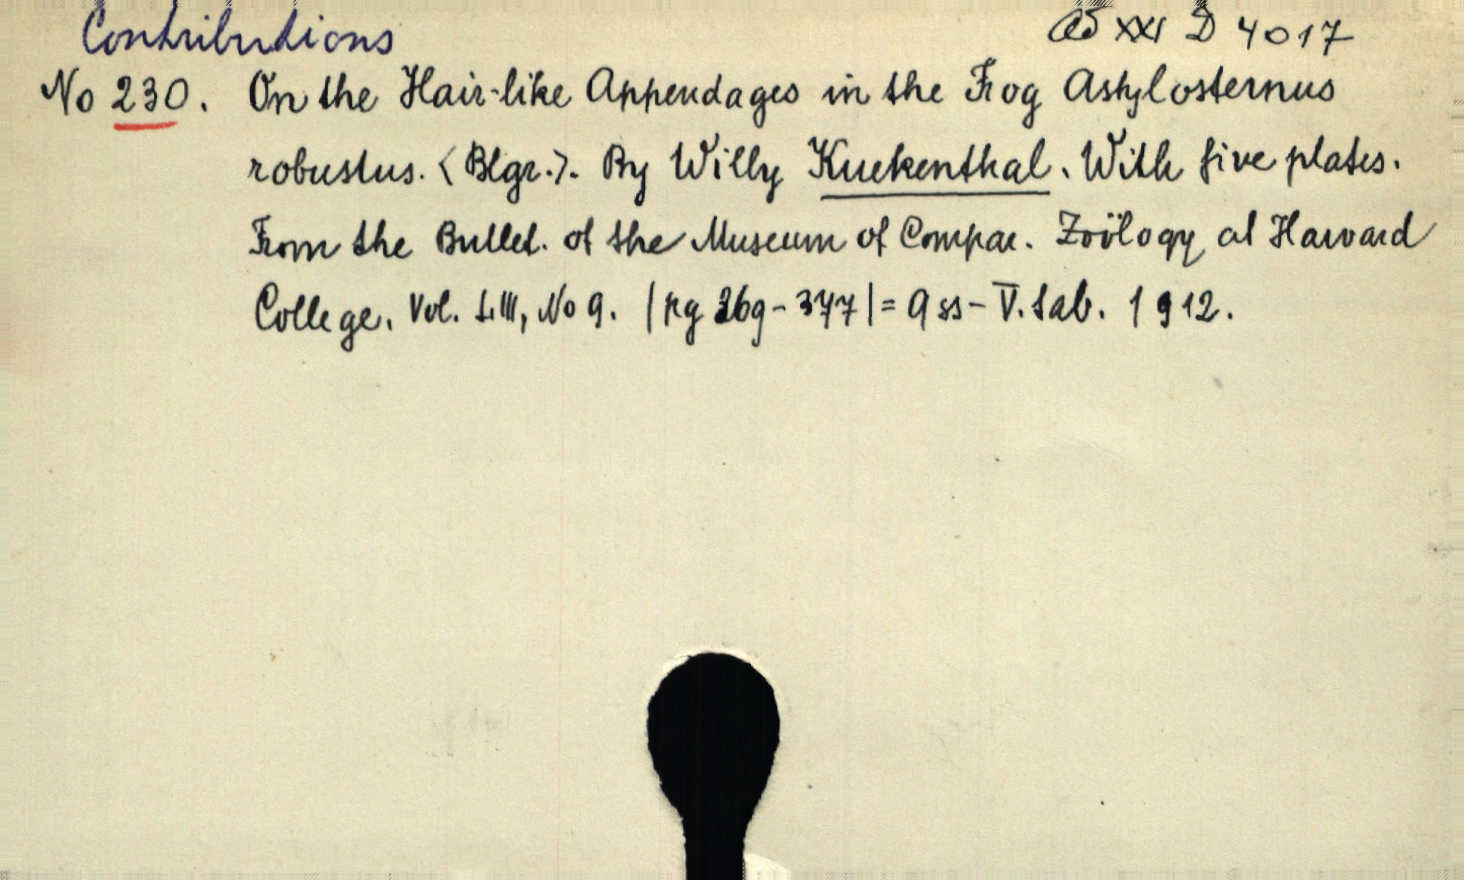 Contributions
Ad XXI D 4017
No 230. On the Hair-like Appendages in the Frog Astylosternus
robustus. <Blgr.>. By Willy Kuekenthal. With five plates.
From the Bullet. of the Museum of Compar. Zoölogy at Harvard
College. Vol. LIII, No 9. |pg 369-377|= 9 ss - V. tab. 1912.